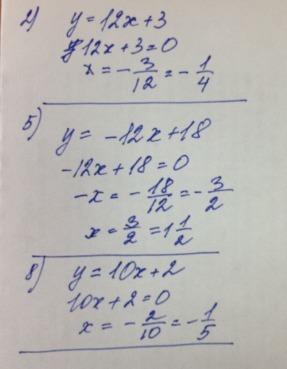 2) y = 12x + 3
12x + 3 = 0
x = -3/12 = -1/4
5) y = -12x + 18
-12x + 18 = 0
-x = -18/12 = -3/2
x = 3/2 = 1 1/2
8) y = 10x + 2
10x + 2 = 0
x = -2/10 = -1/5